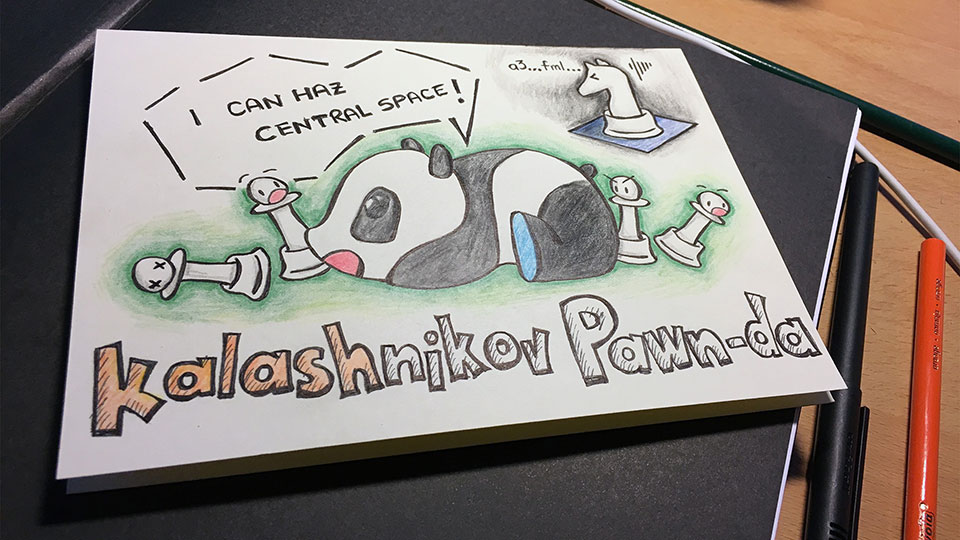 I CAN HAZ
CENTRAL SPACE!
a3...fml...
Kalashnikov Pawn-da